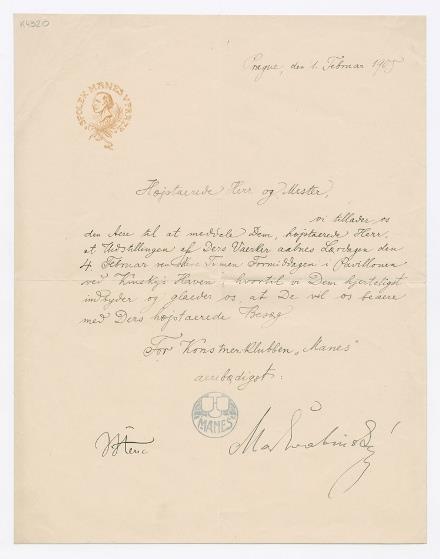 K4320
Prague, den 1. Februar 1905
SPOLEK MANES V PRAZE
Højstaerede Herr og Mester,
vi tillader os
den Aere til at meddele Dem, højstaerede Herr,
at Udstillingen af Ders Vaerker aabnes Lørdagen den
4. Februar ved Timen Formiddagen i Pavillonen
ved Kinsky's Haven, hvortil vi Dem hjerteligst
indbyder og glaeder os, at De vil os beaere
med Ders højstaerede Besøg
For Konstnerklubben „Manes"
aerebødigst:
MANES